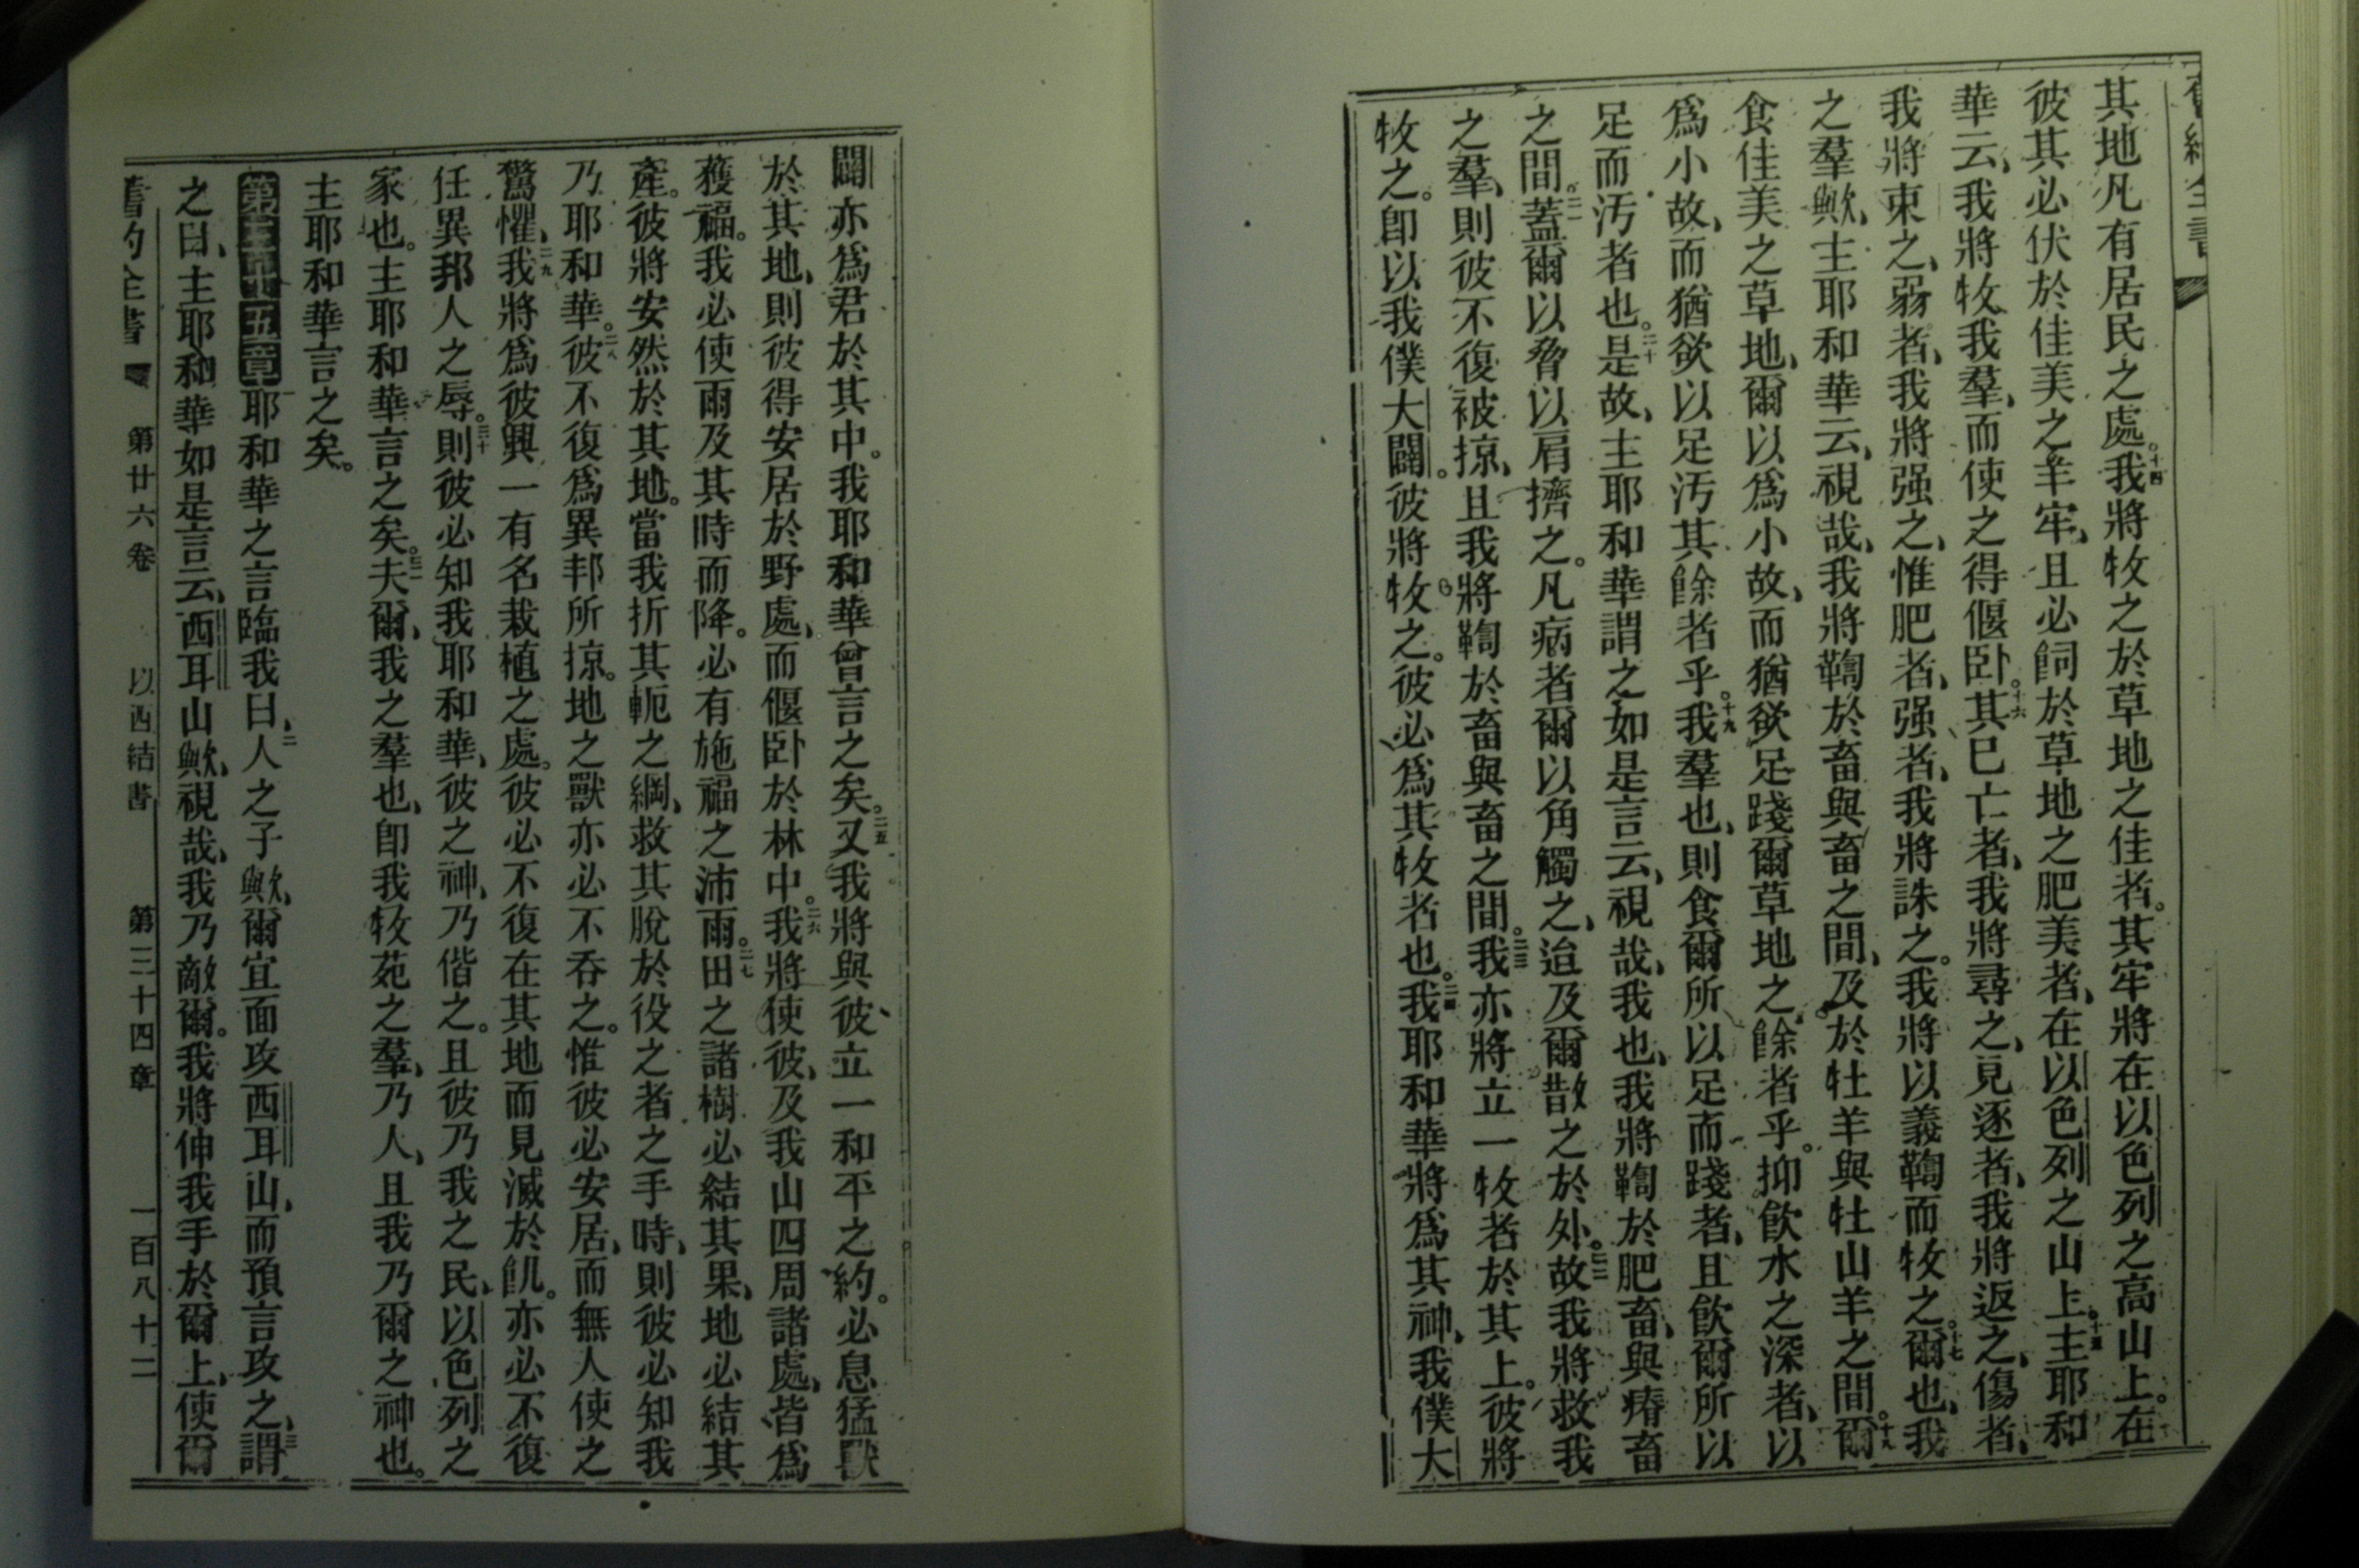 其地凡有居民之處。十四我將牧之於草地之佳者。其牢將在以色列之高山上。在
彼其必伏於佳美之羊牢、且必飼於草地之肥美者、在以色列之山上。十五主耶和
華云、我將牧我羣、而使之得偃卧。十六其已亡者、我將尋之、見逐者、我將返之、傷者、
我將束之、弱者、我將强之、惟肥者、强者、我將誅之。我將以義鞫而牧之。十七爾也、我
之羣歟、主耶和華云、視哉、我將鞫於畜與畜之間、及於牡羊與牡山羊之間。十八爾
食佳美之草地、爾以爲小故、而猶欲足踐爾草地之餘者乎。抑飲水之深者、以
爲小故、而猶欲以足汚其餘者乎。十九我羣也、則食爾所以足而踐者、且飲爾所以
足而汚者也。二十是故、主耶和華謂之如是言云、視哉、我也、我將鞫於肥畜、與瘠畜
之間。二一蓋爾以脅以肩擠之。凡病者爾以角觸之、迨及爾散之於外。二二故我將救我
之羣、則彼不復被掠、且我將鞫於畜與畜之間。二三我亦將立一牧者於其上。彼將
牧之。即以我僕大闢。彼將牧之。彼必爲其牧者也。二四我耶和華將爲其神、我僕大
闢亦爲君於其中。我耶和華曾言之矣。二五又我將與彼立一和平之約。必息猛獸
於其地、則彼得安居於野處、而偃卧於林中。二六我將使彼、及我山四周諸處、皆爲
獲福。我必使雨及其時而降。必有施福之沛雨。二七田之諸樹必結其果、地必結其
產。彼將安然於其地。當我折其軛之綱、救其脫於役之者之手時、則彼必知我
乃耶和華。二八彼不復爲異邦所掠。地之獸亦必不吞之。惟彼必安居、而無人使之
驚懼、二九我將爲彼興一有名栽植之處。彼必不復在其地而見滅於飢。亦必不復
任異邦人之辱。三十則彼必知我耶和華、彼之神、乃偕之。且彼乃我之民、以色列之
家也。主耶和華言之矣。三一夫爾、我之羣也、即我牧苑之羣、乃人、且我乃爾之神也。
主耶和華言之矣。
第三十五章耶和華之言臨我曰、二人之子歟、爾宜面攻西耳山、而預言攻之、三謂
之曰、主耶和華如是言云、西耳山歟、視哉、我乃敵爾。我將伸我手於爾上、使爾
舊約全書 第廿六卷 以西結書 第三十四章 一百八十二